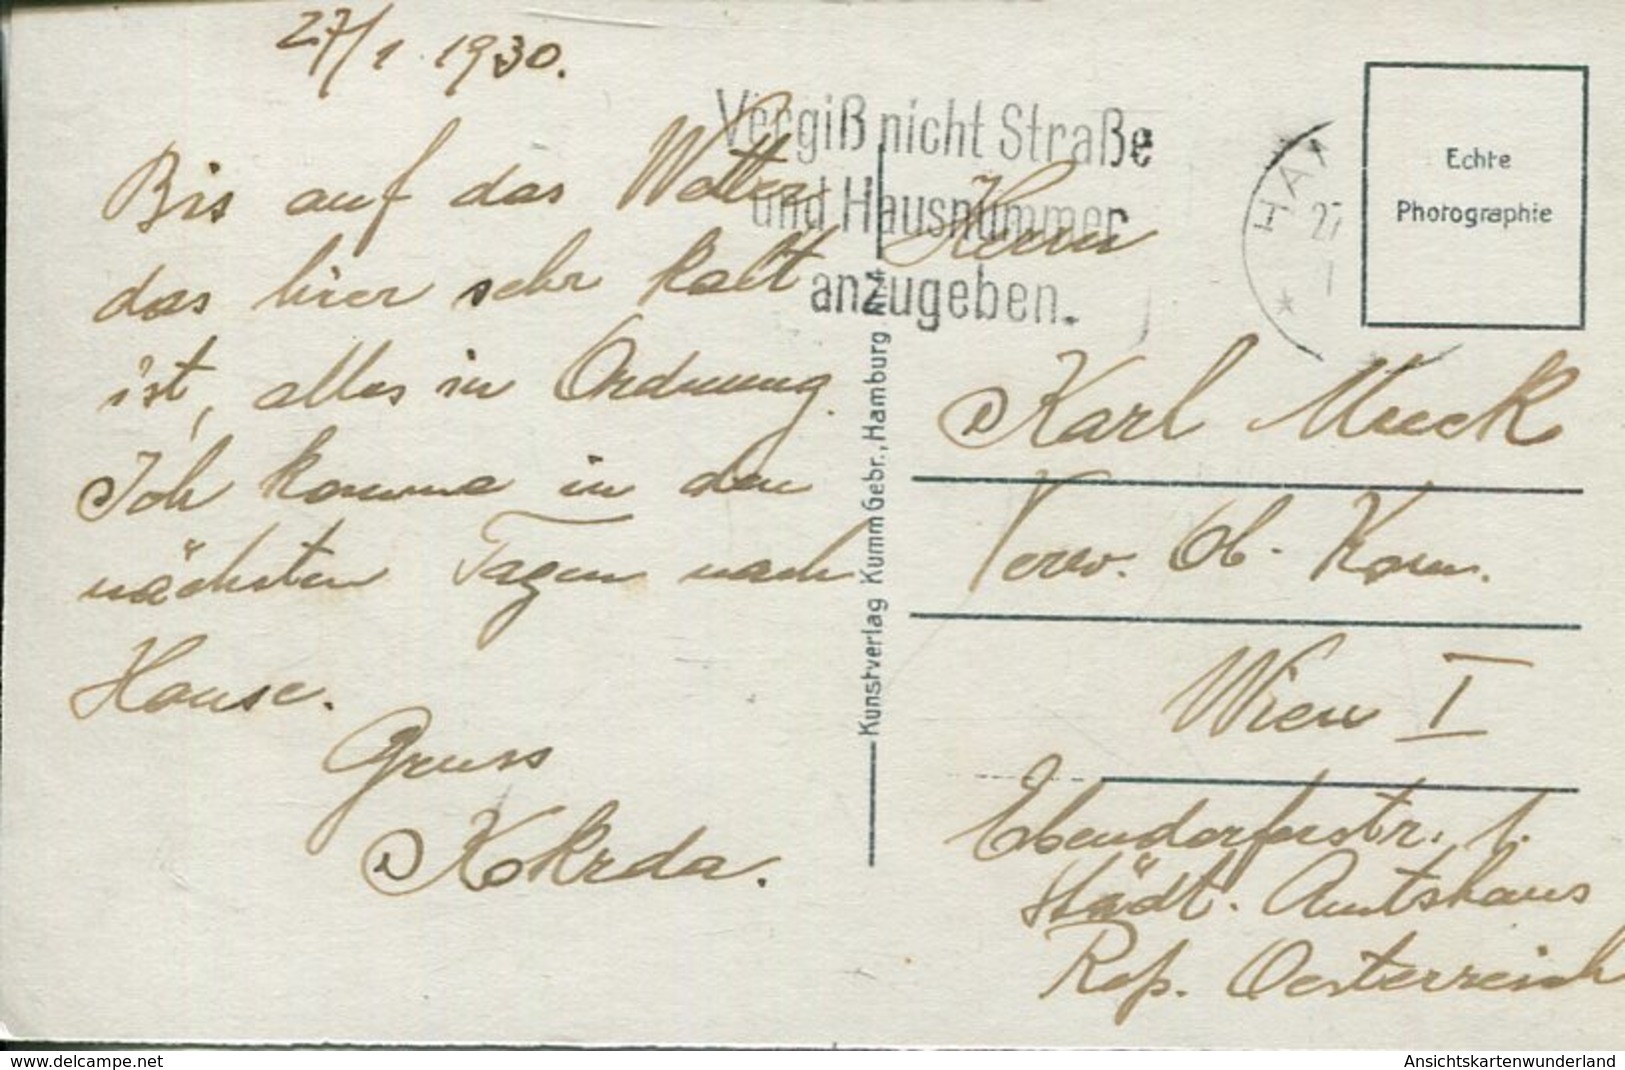 27/1. 1930.
Bis auf das Wetter
das hier sehr kalt
ist, alles in Ordnung.
Ich komme in den
nächsten Tagen nach
Hause.
Gruss
Kokrda.
Vergiß nicht Straße
und Hausnummer
anzugeben.
27
Echte
Photographie
Kunstverlag Kumm Gebr., Hamburg
Herrn
Karl Muck
Verw. Ob. Kom.
Wien I
Ebendorferstr. 1.
Städt. Amtshaus
Rep. Oesterreich
www.delcampe.net
AnsichtskartenwunderIand